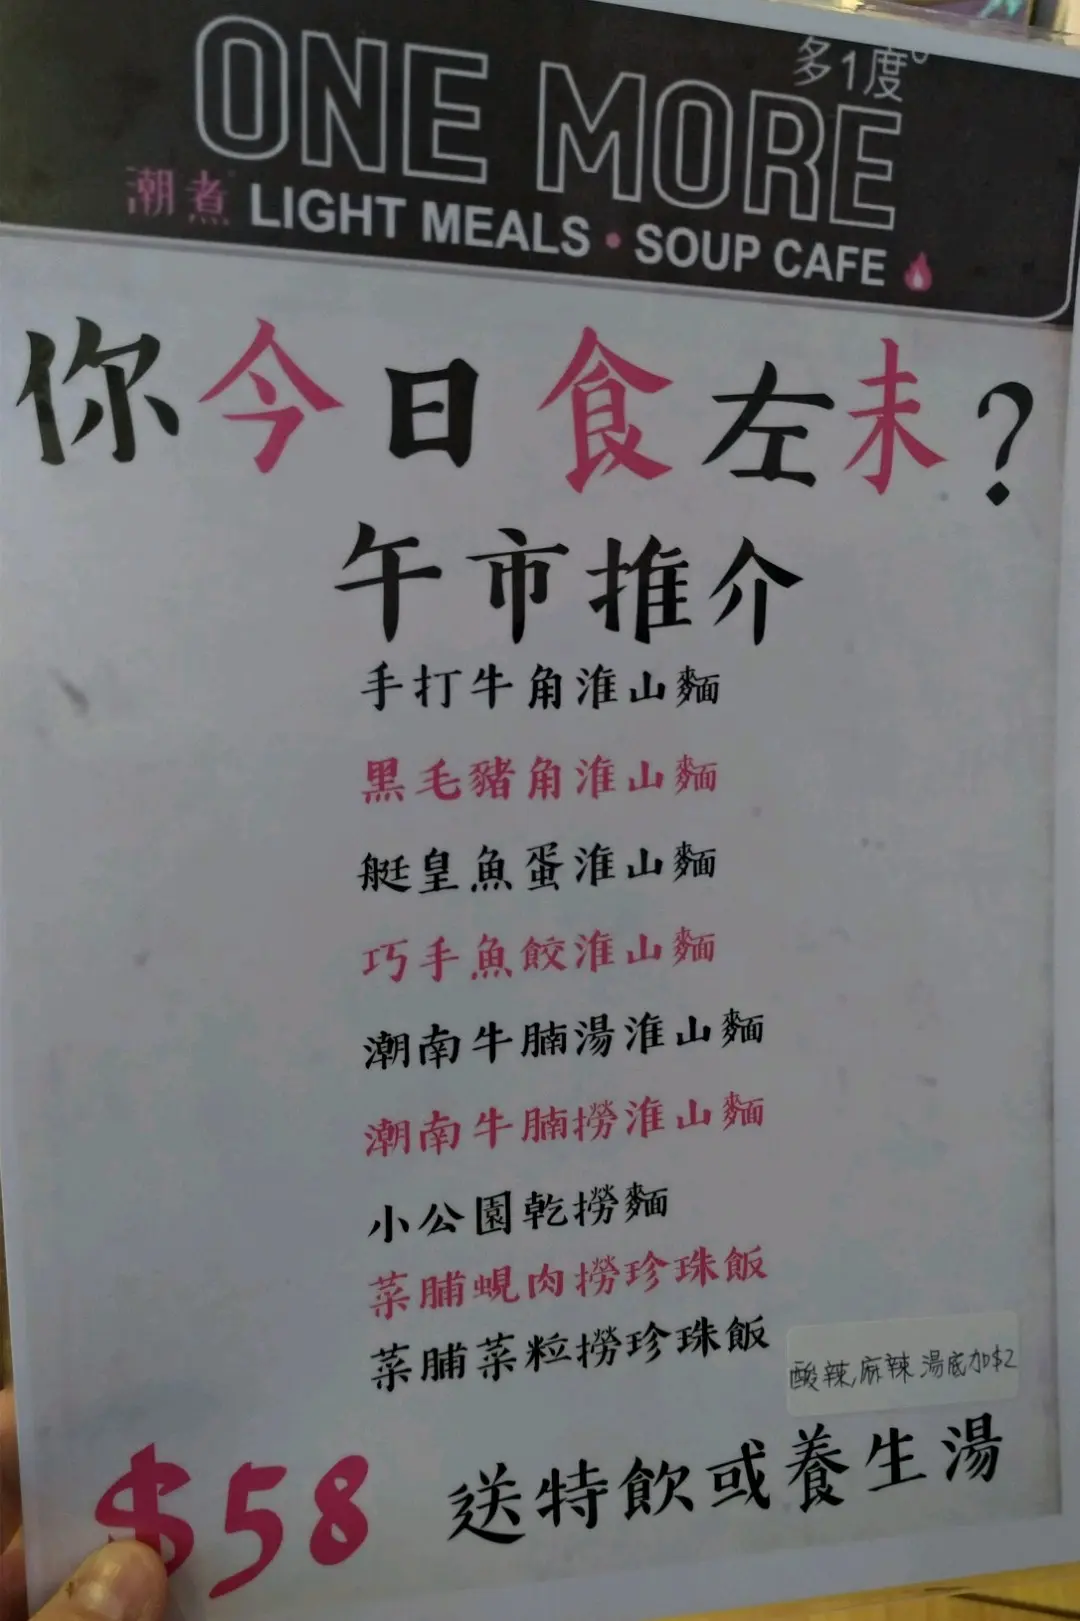 多1度°
ONE MORE
潮煮 LIGHT MEALS • SOUP CAFE
你今日食左未?
午市推介
手打牛角淮山麵
黑毛豬角淮山麵
艇皇魚蛋淮山麵
巧手魚餃淮山麵
潮南牛腩湯淮山麵
潮南牛腩撈淮山麵
小公園乾撈麵
菜脯蜆肉撈珍珠飯
菜脯菜粒撈珍珠飯
酸辣,麻辣湯底加$2
$58 送特飲或養生湯